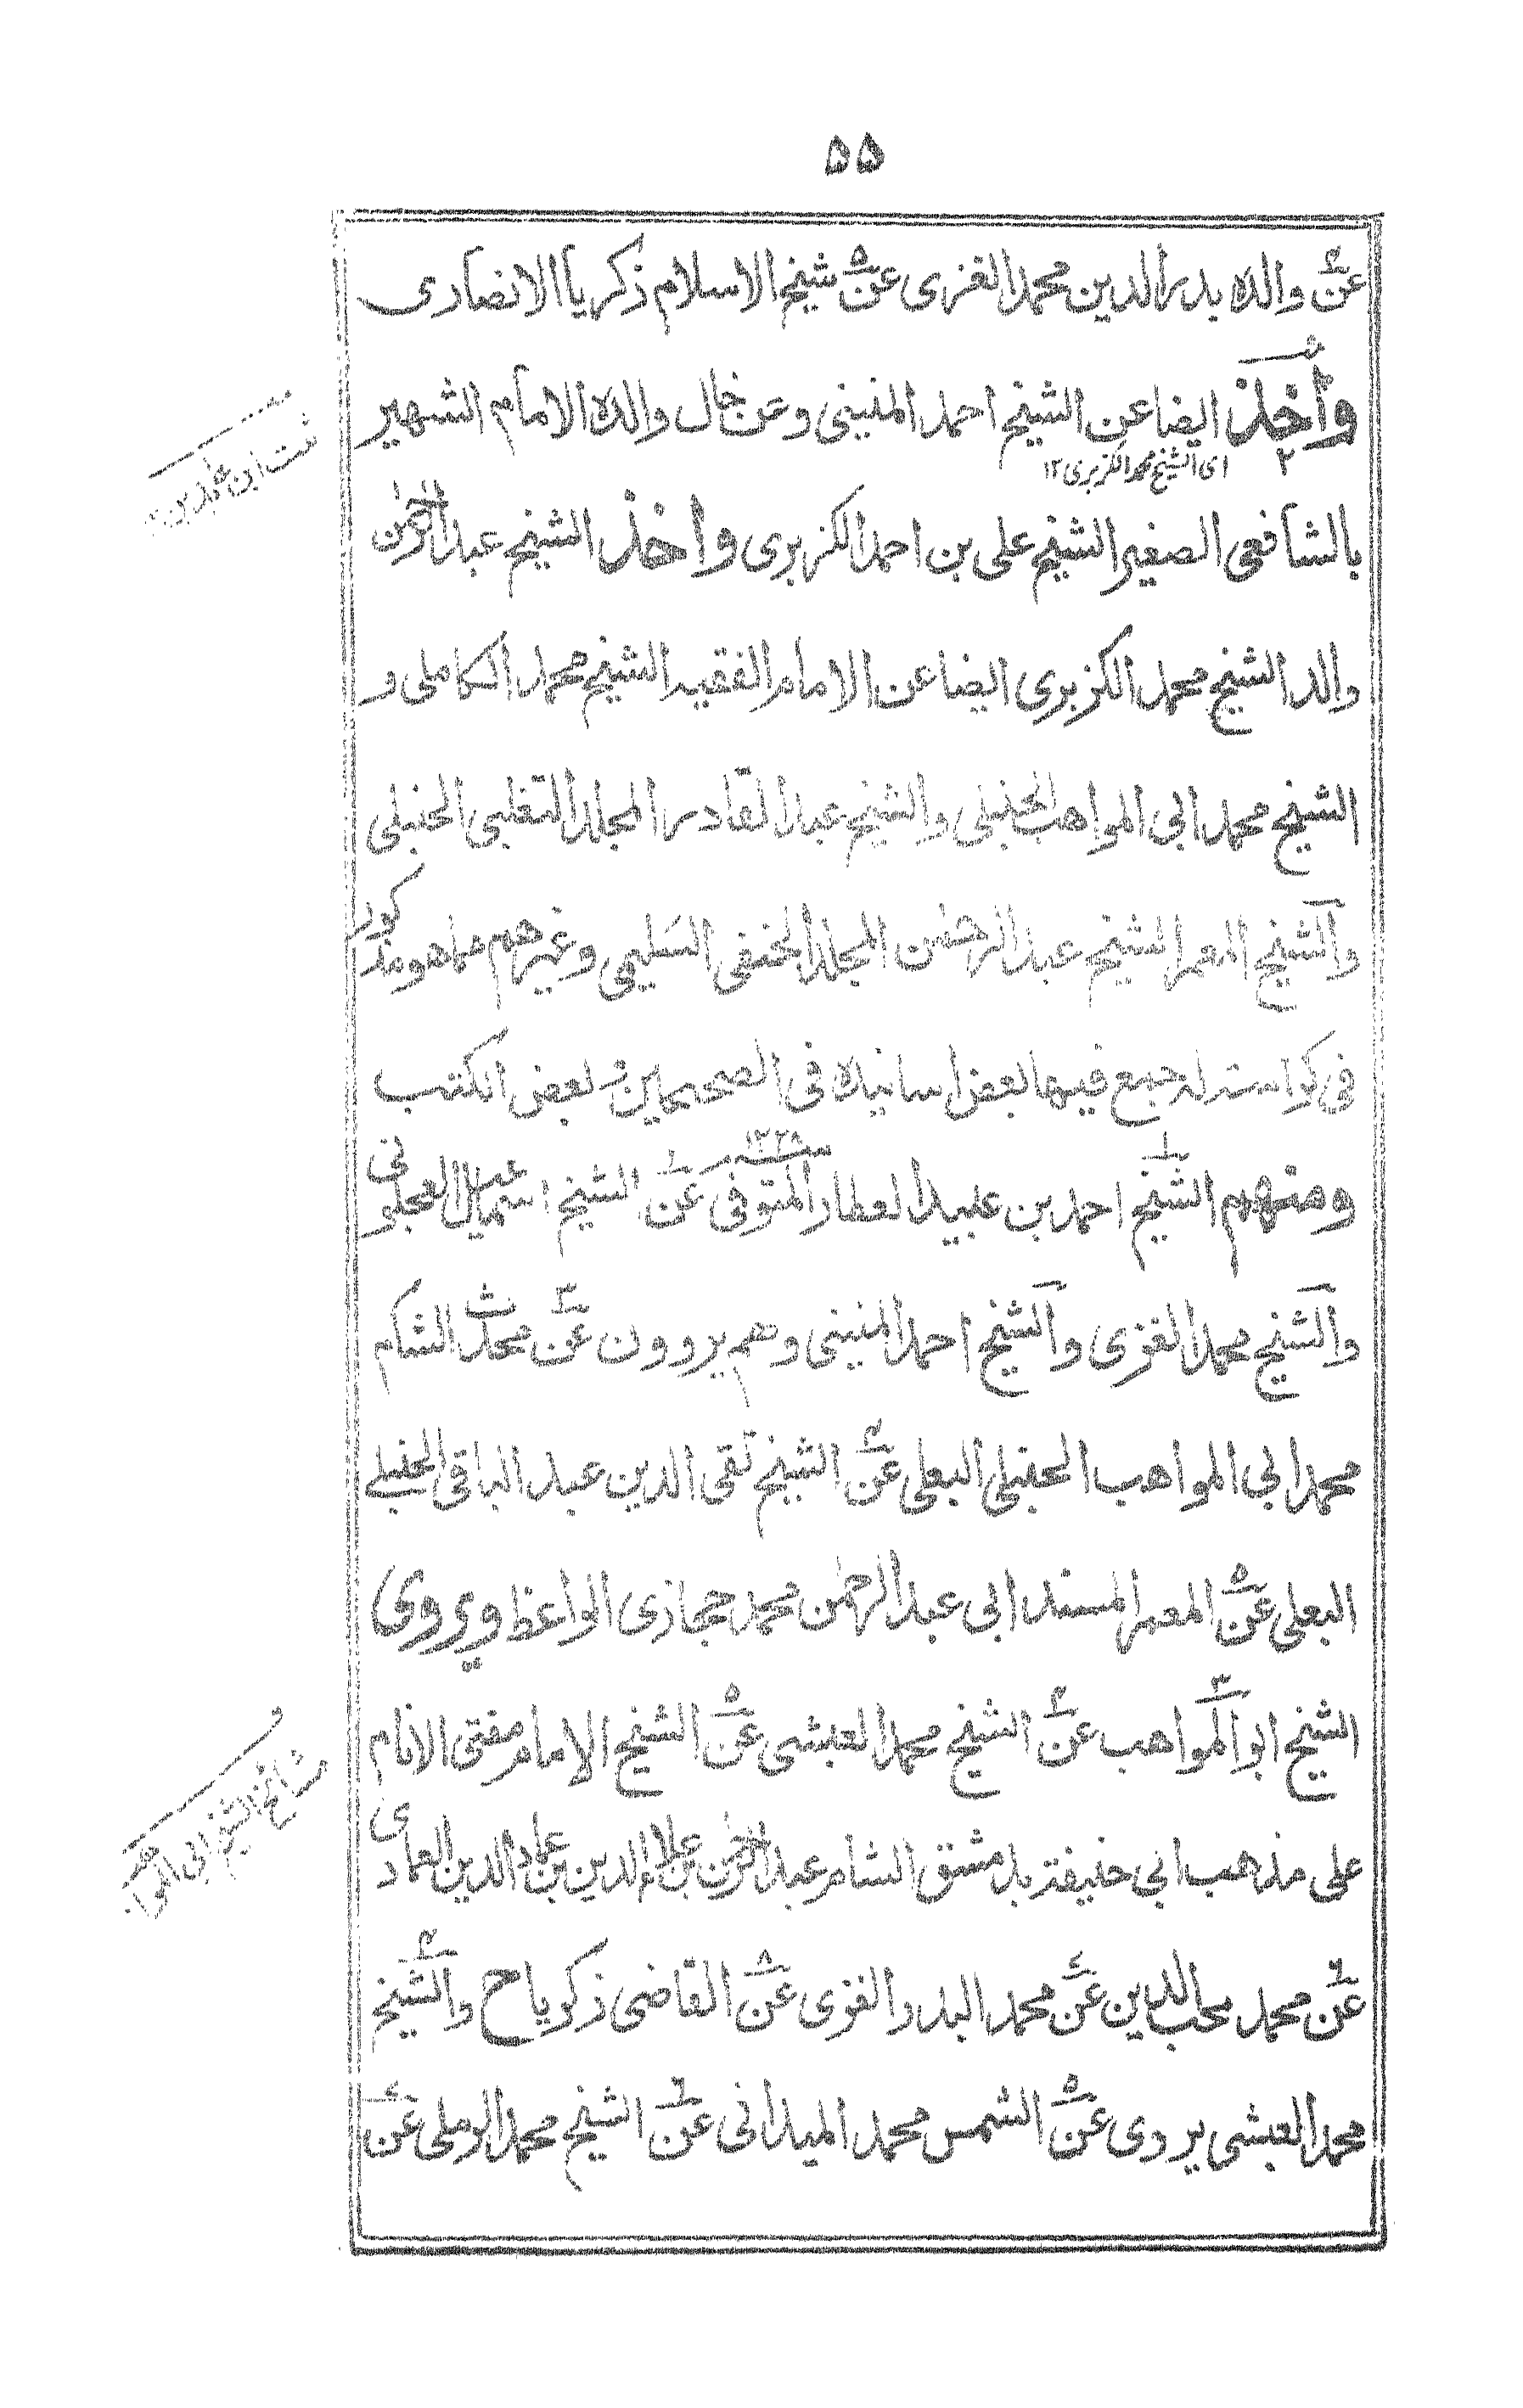 ۵۵
عن والده بدر الدين محمد الغزى عن شيخ الاسلام زكريا الانصارى
واخذ ايضا عن الشيخ احمد المنينى وعن خال والده الامام الشهير
اى الشيخ محمد الكزبرى ١٢
بالشافعى الصغير الشيخ على بن احمد الكزبرى واخذ الشيخ عبد الرحمن
والد الشيخ محمد الكزبرى ايضا عن الامام الفقيه الشيخ محمد الكاملى و
الشيخ محمد ابى المواهب الحنبلى والشيخ عبد القادر المجلد التغلبى الحنبلى
والشيخ المعمر الشيخ عبد الرحمن المجلد الحنفى السليمى وغيرهم مما هو مذكور
فى كراسة له جمع فيها بعض اسانيده فى الصحيحين وبعض الكتب
ومنهم الشيخ احمد بن عبيد العطار المتوفى ١٢٢٨ عن الشيخ اسمعيل العجلونى
والشيخ محمد الغزى والشيخ احمد المنينى وهم يروون عن محدث الشام
محمد ابى المواهب الحنبلى البعلى عن الشيخ تقى الدين عبد الباقى الحنبلے
البعلى عن المعمر المسند ابى عبد الرحمن محمد حجازى الواعظ ويروى
الشيخ ابو المواهب عن الشيخ محمد العبشى عن الشيخ الامام مفتى الانام
على مذهب ابى حنيفة بدمشق الشام عبد الرحمن بن علام الدين بن عماد الدين العمادى
عن محمد محب الدين عن محمد البدر الغزى عن القاضى زكريا ح والشيخ
محمد العبشى يروى عن الشمس محمد الميدانى عن الشيخ محمد الرملى عن
ثبت ابن عابدين
مشائخ الشيخ ابى